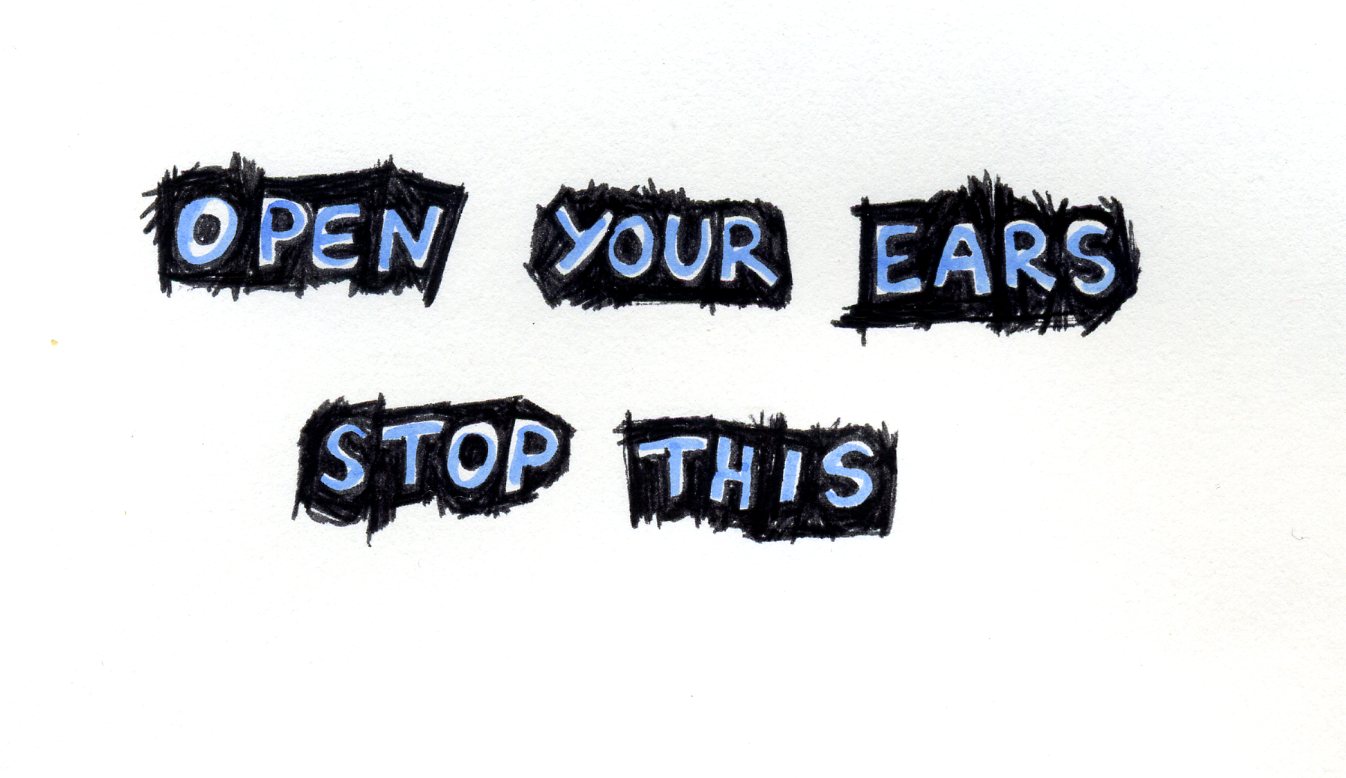 OPEN YOUR EARS
STOP THIS